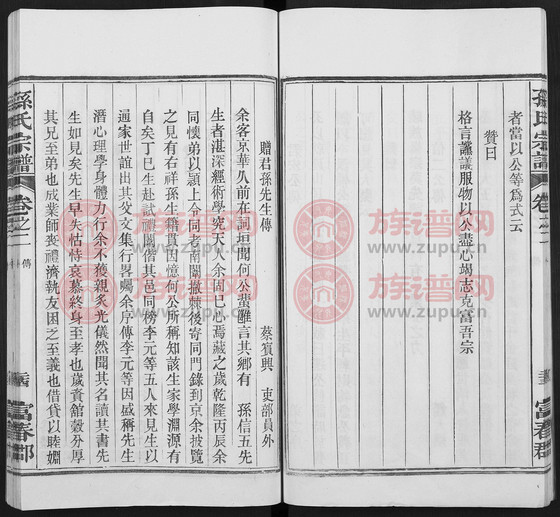 孫氏宗譜
卷之一
富春郡
者當以公等為式云
贊曰
格言讜議服物以公盡心竭志克富吾宗
孫氏宗譜
卷之一
傳
富春郡
贈君孫先生傳
蔡賓興 吏部員外
余客京華乆前在詞垣聞何公蜚聲言其鄉有 孫信五先
生者湛深經術學究天人余固已心焉藏之歲乾隆丙辰余
同懷弟以潁上令同考南闈撤棘後寄同門錄到京余披覽
之見有右祥孫生籍貫因憶何公所稱知該生家學淵源有
自矣丁巳生赴試禮闈偕其邑同榜李元等五人來見生以
通家世誼出其父文集行畧囑余序傳李元等因盛稱先生
潛心理學身體力行余不獲親炙光儀然聞其名讀其書先
生如見矣先生早失怙恃哀慕終身至孝也歲資館穀分厚
其兄至弟也成業師喪禮濟執友困乏至義也借貸以睦婣
族谱网
www.zupu.cn
族谱网
www.zupu.cn
族谱网
www.zupu.cn
族谱网
www.zupu.cn